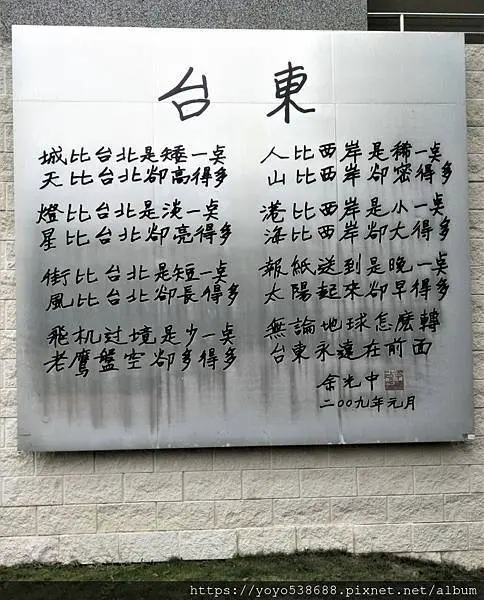 台東
城比台北是矮一点
天比台北卻高得多
燈比台北是淡一点
星比台北卻亮得多
街比台北是短一点
風比台北卻長得多
飛机过境是少一点
老鷹盤空卻多得多
人比西岸是稀一点
山比西岸卻密得多
港比西岸是小一点
海比西岸卻大得多
報紙送到是晚一点
太陽起來卻早得多
無論地球怎麽轉
台東永遠在前面
余光中
二〇〇九年元月
https://yoyo538688.pixnet.net/album